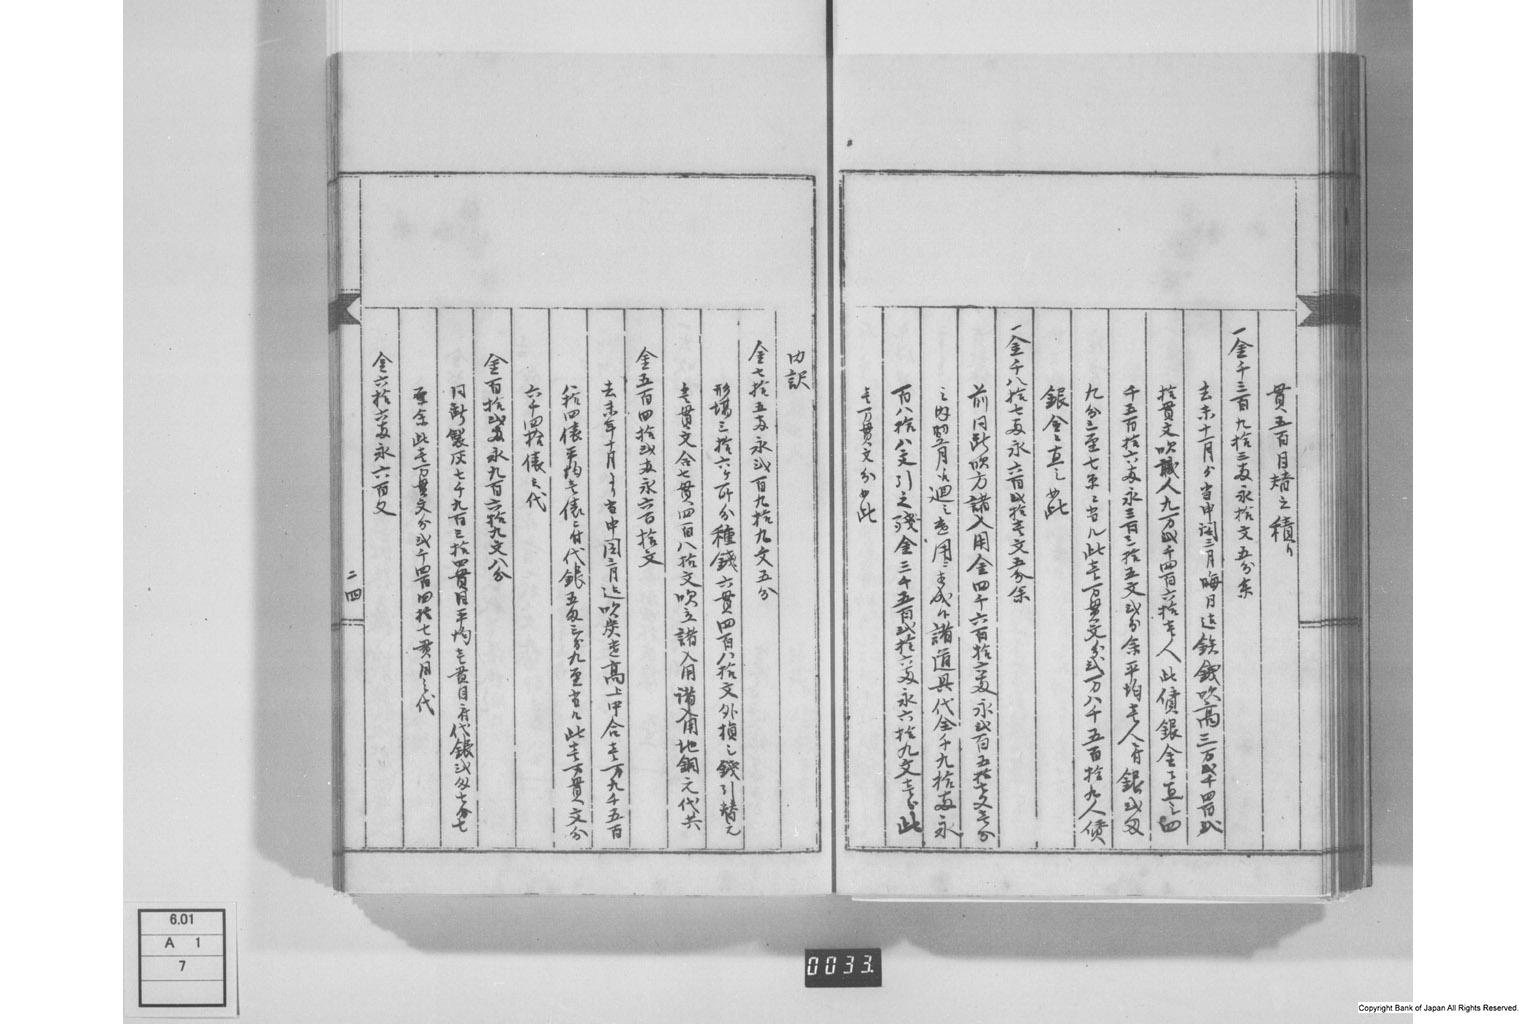 貫五百目積之積り
一金千三百九拾三両永拾文五分余
去未十一月ゟ当申閏三月晦日迄鉄銭吹高三万弐千四百弐
拾貫文吹職人九万弐千四百六拾壱人此賃銀金ニ直シ四
千五百拾六両永三百三拾五文弐分余平均壱人ニ付銀弐匁
九分三厘七毛ニ当ル此壱万貫文分弐万八千五百拾九人賃
銀金ニ直シ如此
一金千八拾七両永六百弐拾壱文五分余
前同断吹方諸入用金四千六百拾六両永弐百五拾七文七分
之内
諸道具代金千九拾両永
百八拾八文引之残金三千五百弐拾六両永六拾九文
此
壱万貫文分如此
内訳
金七拾五両永弐百九拾九文五分
形場三拾六ヶ所分種銭六貫四百八拾文外損シ銭引替元
壱貫文合七貫四百八拾文吹立諸入用諸入用地銅元代共
金五百四拾弐両永六百拾文
去未年十月ゟ当申閏三月迄吹炭遣高上中合壱万九千五百
八拾四俵平均壱俵ニ付代銀五匁三分九厘当ル此壱万貫文分
六千四拾俵之代
金百拾弐両永九百六拾九文八分
同断製灰七千九百三拾四貫目平均壱貫目ニ付代銀弐匁七分七
厘余此壱万貫文分弐千四百四拾七貫目之代
金六拾六両永六百文
二四
6.01
A 1
7
0033.
Copyright Bank of Japan All Rights Reserved.